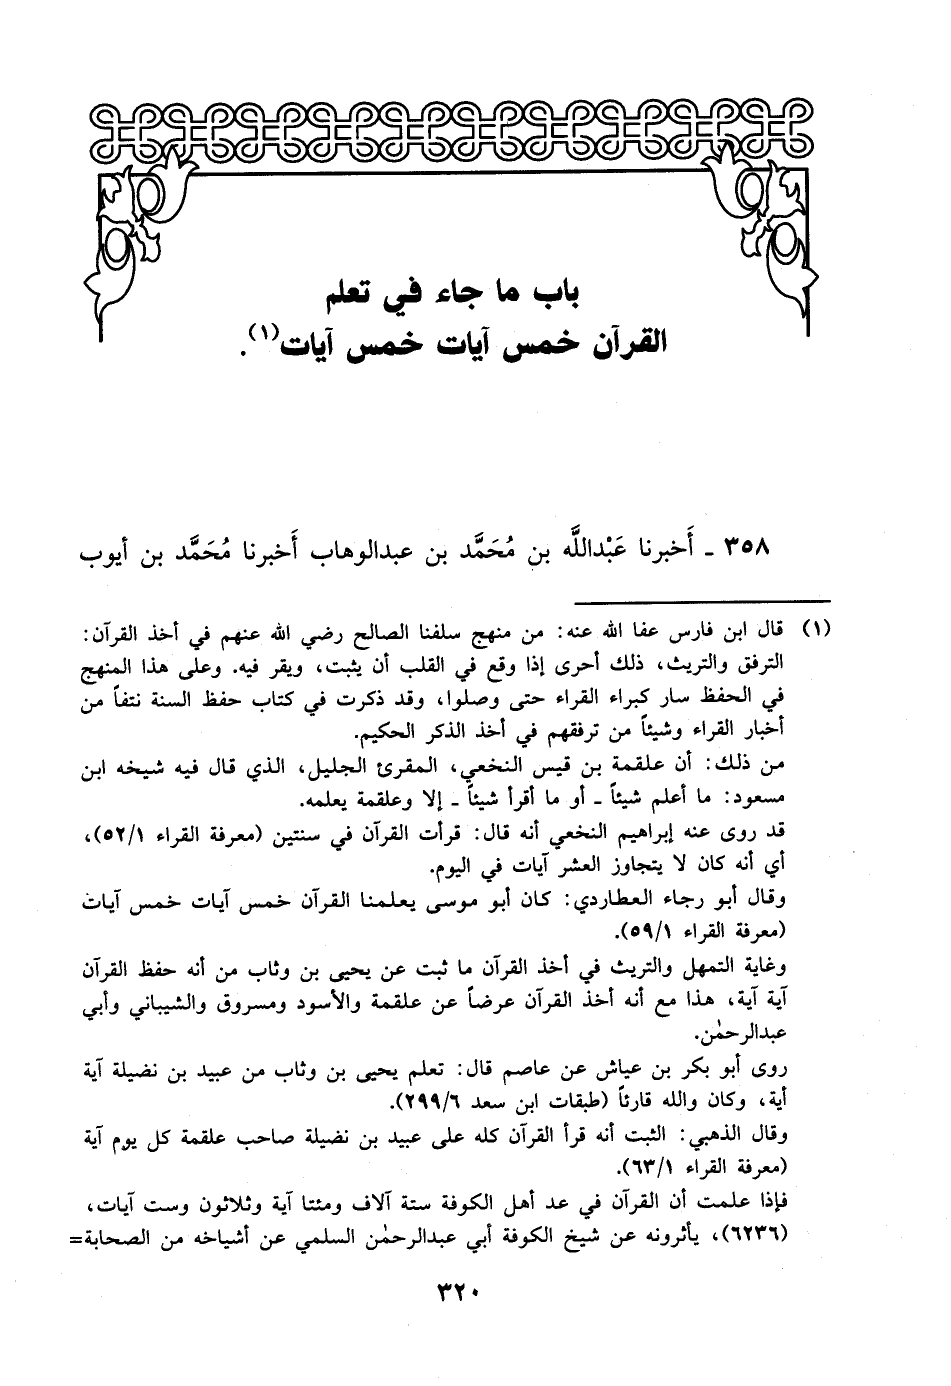 باب ما جاء في تعلم
القرآن خمس آيات خمس آيات(١).
٣٥٨ ـ أَخبرنا عَبْدالله بن مُحَمَّد بن عبدالوهاب أَخبرنا مُحَمَّد بن أيوب
(١) قال ابن فارس عفا الله عنه: من منهج سلفنا الصالح رضي الله عنهم في أخذ القرآن:
الترفق والتريث، ذلك أحرى إذا وقع في القلب أن يثبت، ويقر فيه. وعلى هذا المنهج
في الحفظ سار كبراء القراء حتى وصلوا، وقد ذكرت في كتاب حفظ السنة نتفاً من
أخبار القراء وشيئاً من ترفقهم في أخذ الذكر الحكيم.
من ذلك: أن علقمة بن قيس النخعي، المقرئ الجليل، الذي قال فيه شيخه ابن
مسعود: ما أعلم شيئاً ـ أو ما أقرأ شيئاً ـ إلا وعلقمة يعلمه.
قد روى عنه إبراهيم النخعي أنه قال: قرأت القرآن في سنتين (معرفة القراء ٥٢/١)،
أي أنه كان لا يتجاوز العشر آيات في اليوم.
وقال أبو رجاء العطاردي: كان أبو موسى يعلمنا القرآن خمس آيات خمس آيات
(معرفة القراء ٥٩/١).
وغاية التمهل والتريث في أخذ القرآن ما ثبت عن يحيى بن وثاب من أنه حفظ القرآن
آية آية، هذا مع أنه أخذ القرآن عرضاً عن علقمة والأسود ومسروق والشيباني وأبي
عبدالرحمٰن.
روى أبو بكر بن عياش عن عاصم قال: تعلم يحيى بن وثاب من عبيد بن نضيلة آية
أية، وكان والله قارئاً (طبقات ابن سعد ٢٩٩/٦).
وقال الذهبي: الثبت أنه قرأ القرآن كله على عبيد بن نضيلة صاحب علقمة كل يوم آية
(معرفة القراء ٦٣/١).
فإذا علمت أن القرآن في عد أهل الكوفة ستة آلاف ومئتا آية وثلاثون وست آيات،
(٦٢٣٦)، يأثرونه عن شيخ الكوفة أبي عبدالرحمٰن السلمي عن أشياخه من الصحابة=
٣٢٠